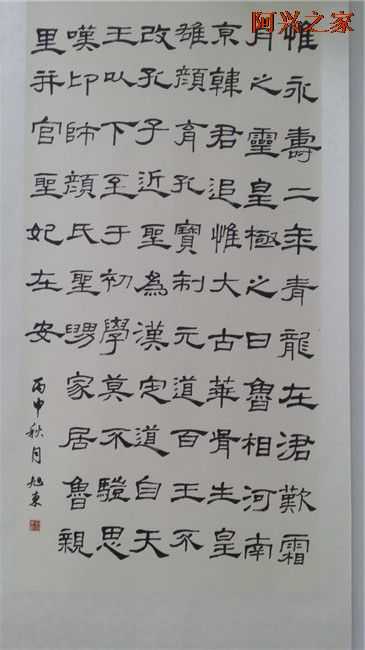 阿兴之家
惟永壽二年青龍在涒歎霜
月之靈皇極之日魯相河南
京韓君追惟大古華胥生皇
雄顏育孔寶制元道百王不
改孔子近聖為漢定道自天
王以下至于初學莫不思
嘆卬師顏氏聖舅家居魯親
里并官聖妃在安
丙申秋月旭東